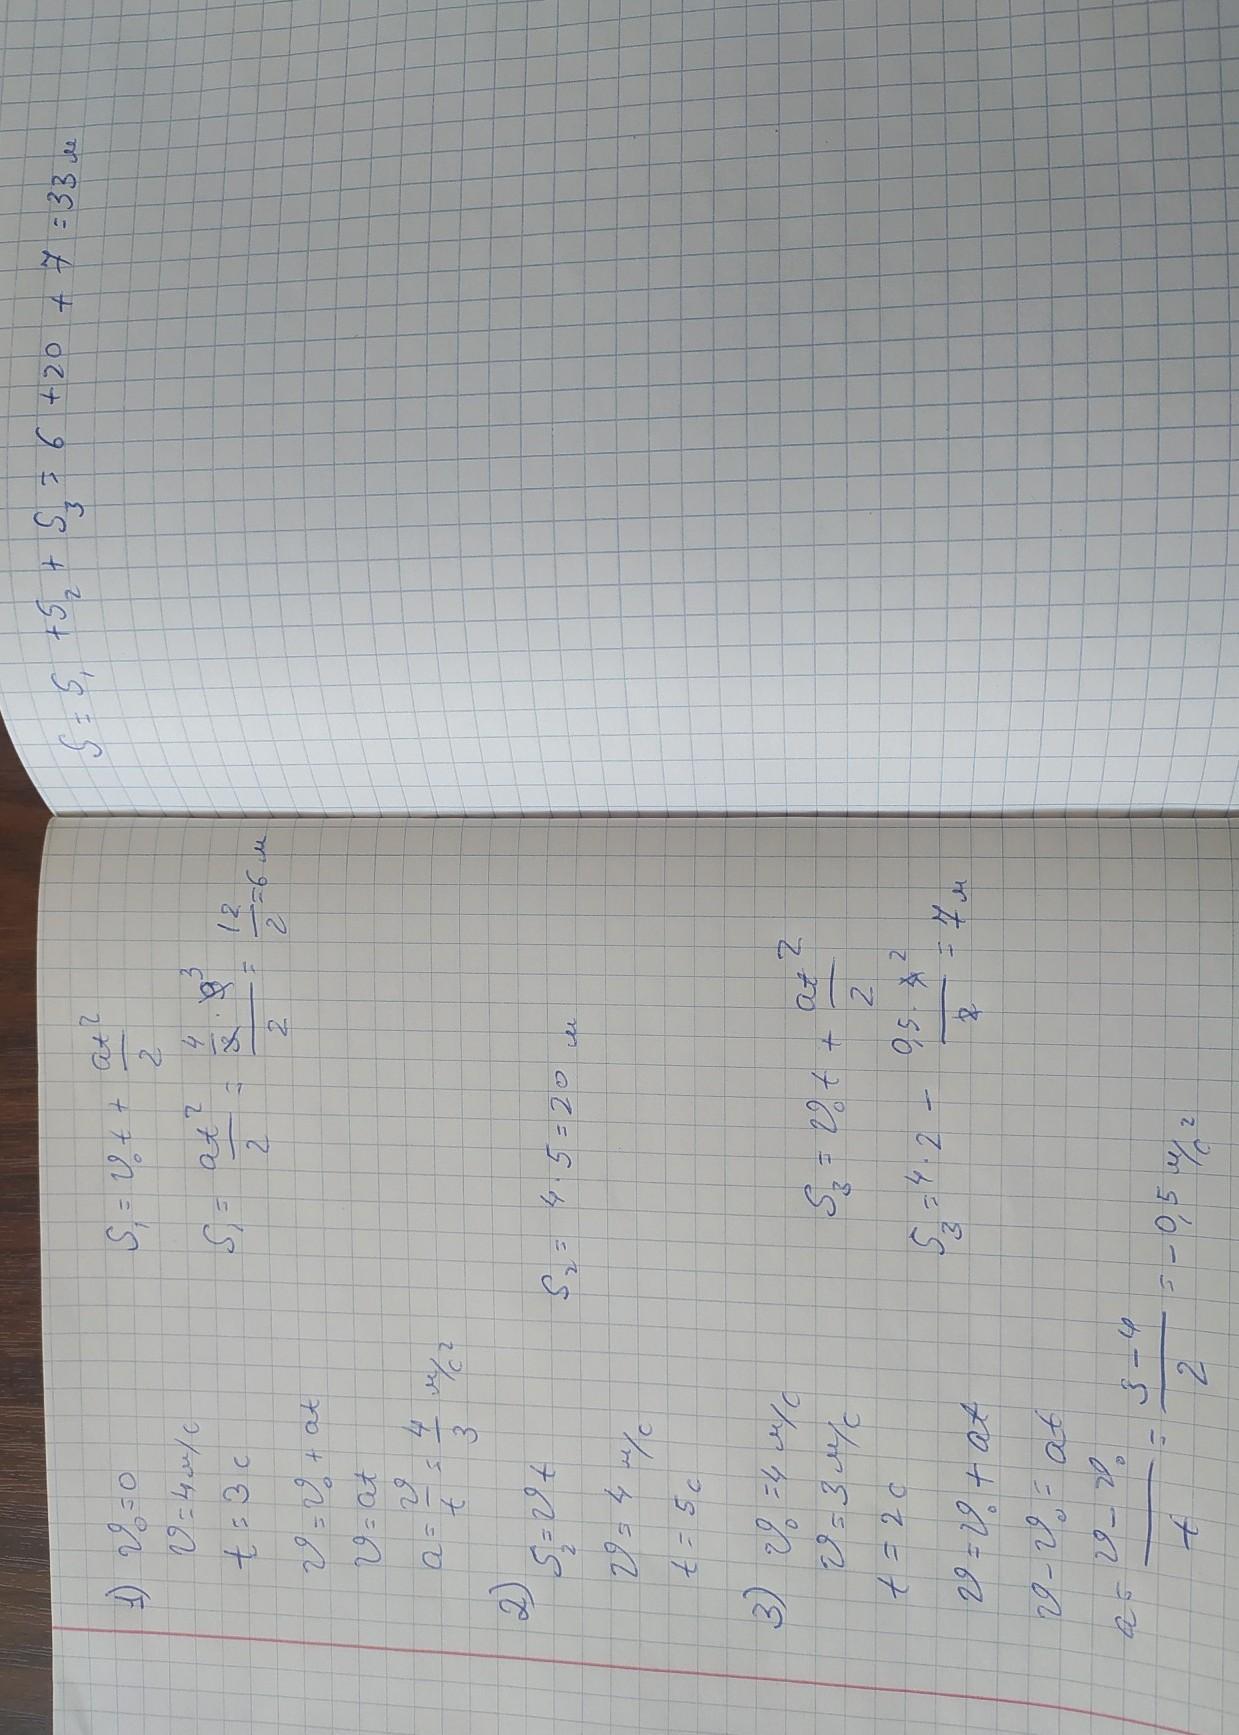 1) υ₀ = 0
υ = 4 м/с
t = 3 с
υ = υ₀ + at
υ = at
a = υ/t = 4/3 м/с²
S₁ = υ₀t + at²/2
S₁ = at²/2 = (4/3 · 9³)/2 = 12/2 = 6 м
2) S₂ = υt
υ = 4 м/с
t = 5 с
S₂ = 4 · 5 = 20 м
3) υ₀ = 4 м/с
υ = 3 м/с
t = 2 с
υ = υ₀ + at
υ - υ₀ = at
a = (υ - υ₀)/t = (3 - 4)/2 = -0,5 м/с²
S₃ = υ₀t + at²/2
S₃ = 4 · 2 - (0,5 · 4²)/2 = 7 м
S = S₁ + S₂ + S₃ = 6 + 20 + 7 = 33 м